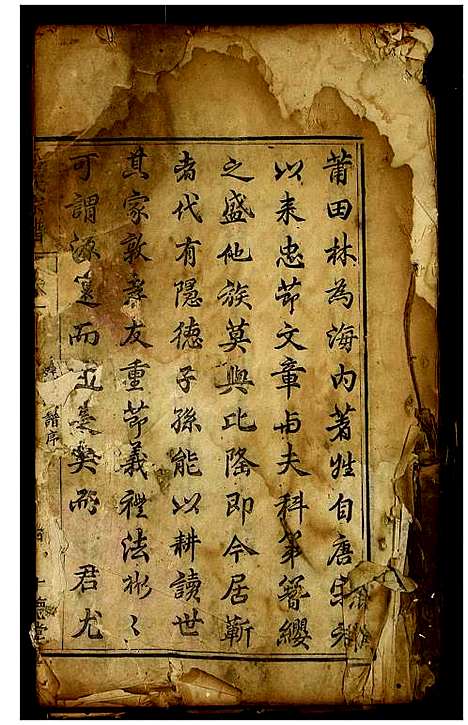 莆田林為海内著姓自唐宋
以来忠節文章与夫科第簪纓
之盛他族莫與比隆即今居蘄
者代有隱德子孫能以耕讀世
其家敦孝友重節義禮法彬〻
可謂源遠而流長矣而 君尤
譜序
德堂